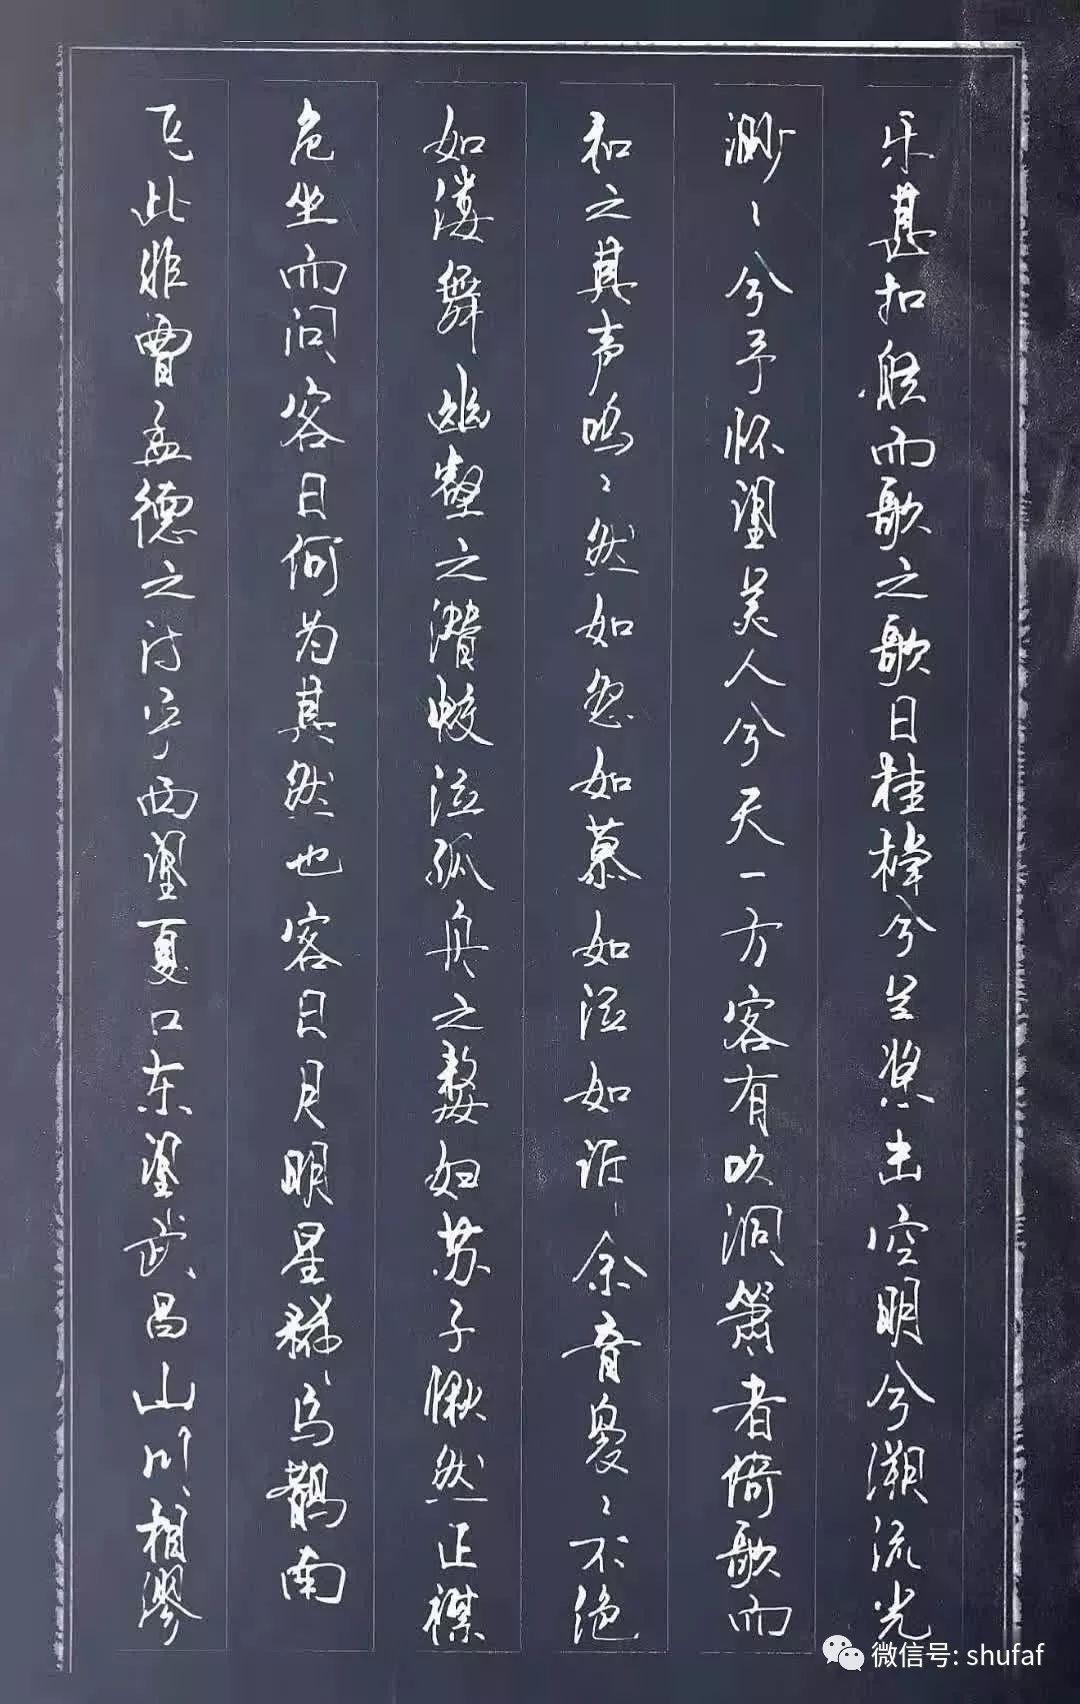 乐甚扣舷而歌之歌曰桂棹兮兰桨击空明兮溯流光
渺〻兮予怀望美人兮天一方客有吹洞箫者倚歌而
和之其声呜〻然如怨如慕如泣如诉余音袅〻不绝
如缕舞幽壑之潜蛟泣孤舟之嫠妇苏子愀然正襟
危坐而问客曰何为其然也客曰月明星稀乌鹊南
飞此非曹孟德之诗乎西望夏口东望武昌山川相缪
微信号: shufaf